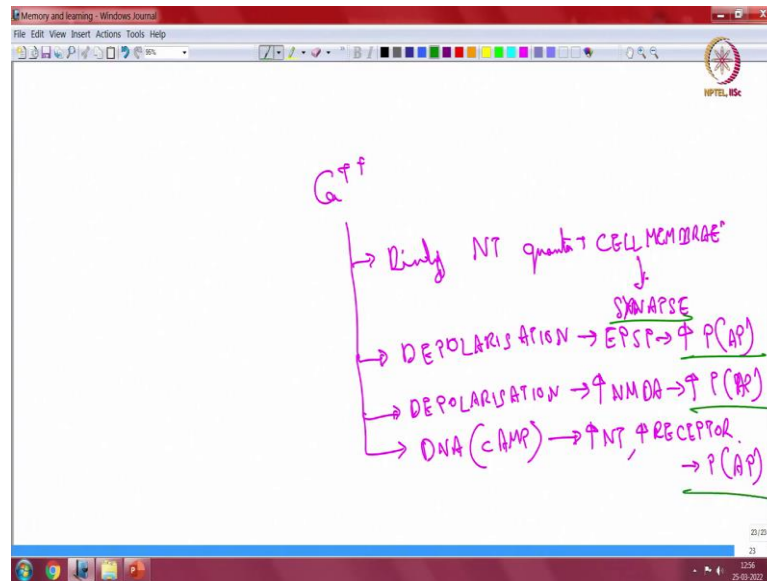 Memory and learning - Windows Journal
File Edit View Insert Actions Tools Help
95%
B I
NPTEL, IISc
Ca++
→ NT quanta → CELL MEMBRAE
↓
SYNAPSE
→ DEPOLARISATION → EPSP → ↑ P(AP)
→ DEPOLARISATION → ↑ NMDA → ↑ P(AP)
→ DNA (cAMP) → ↑ NT, ↑ RECEPTOR
→ P(AP)
23/23
23
1256
25-03-2022